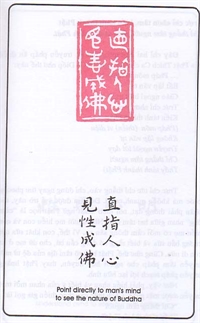 直指人心
見性成佛
直指人心
見性成佛
Point directly to man's mind
to see the nature of Buddha